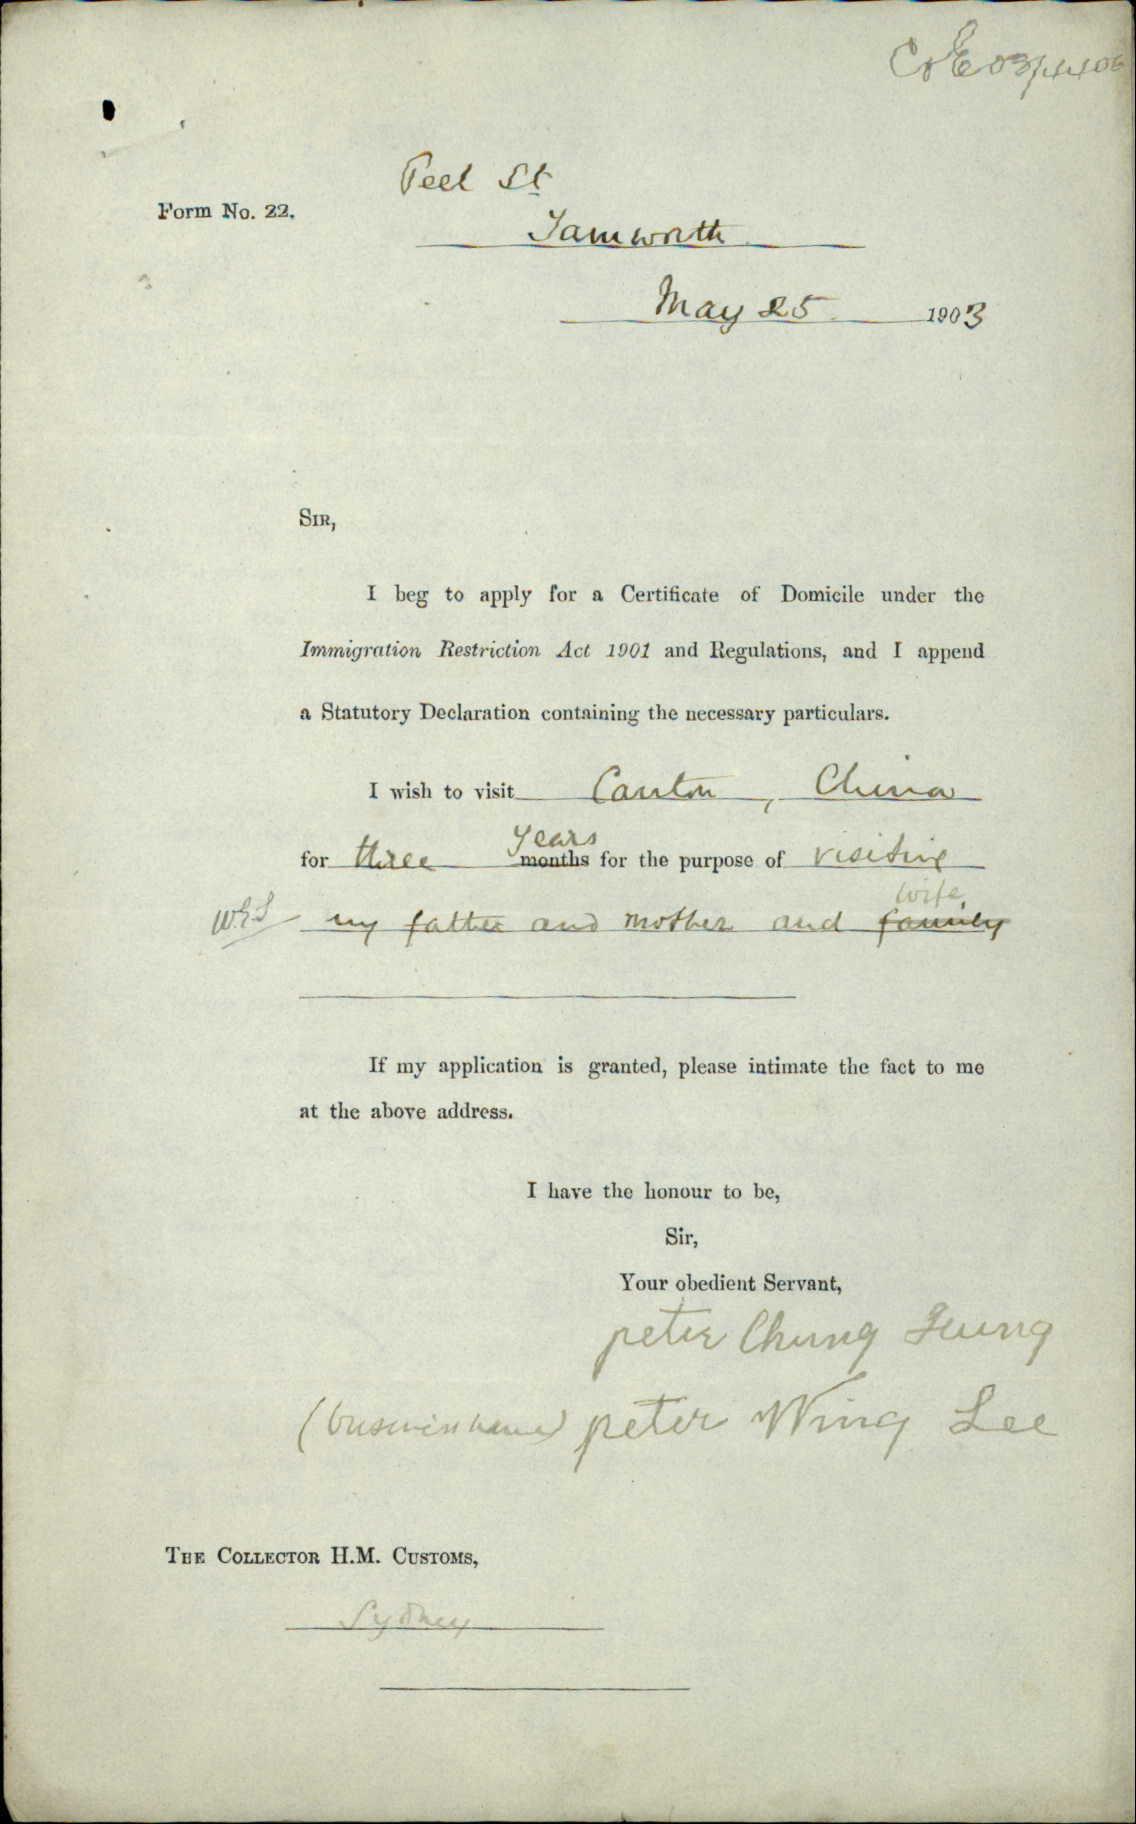 C & E 03/4406
Peel St
Form No. 22.
Tamworth
May 25 1903
SIR,
I beg to apply for a Certificate of Domicile under the
Immigration Restriction Act 1901 and Regulations, and I append
a Statutory Declaration containing the necessary particulars.
I wish to visit Canton, China
years
for three months for the purpose of visiting
wife
my father and mother and family
If my application is granted, please intimate the fact to me
at the above address.
I have the honour to be,
Sir,
Your obedient Servant,
peter Chung
peter Wing Lee
THE COLLECTOR H.M. CUSTOMS,
Sydney